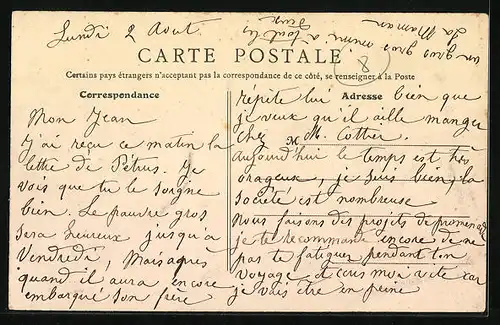 Lundi 2 Aout
un gros gros mimi à tout les
deux
La Maman
8
CARTE POSTALE
Certains pays étrangers n'acceptant pas la correspondance de ce côté, se renseigner à la Poste
Correspondance
Adresse
Mon Jean
J'ai reçu ce matin la
lettre de Pétrus. Je
vois que tu le soigne
bien. Le pauvre gros
sera heureux jusqu'à
Vendredi, Mais apres
quand il aura encore
embarqué son frère
répite lui bien que
je veux qu'il aille manger
chez M. Cottier.
M
Aujourd'hui le temps est très
orageux, je suis bien, la
société est nombreuse
nous faisons des projets de promenade
je te recommande encore de ne
pas te fatiguer pendant ton
voyage et ecris moi vite car
je vais être en peine